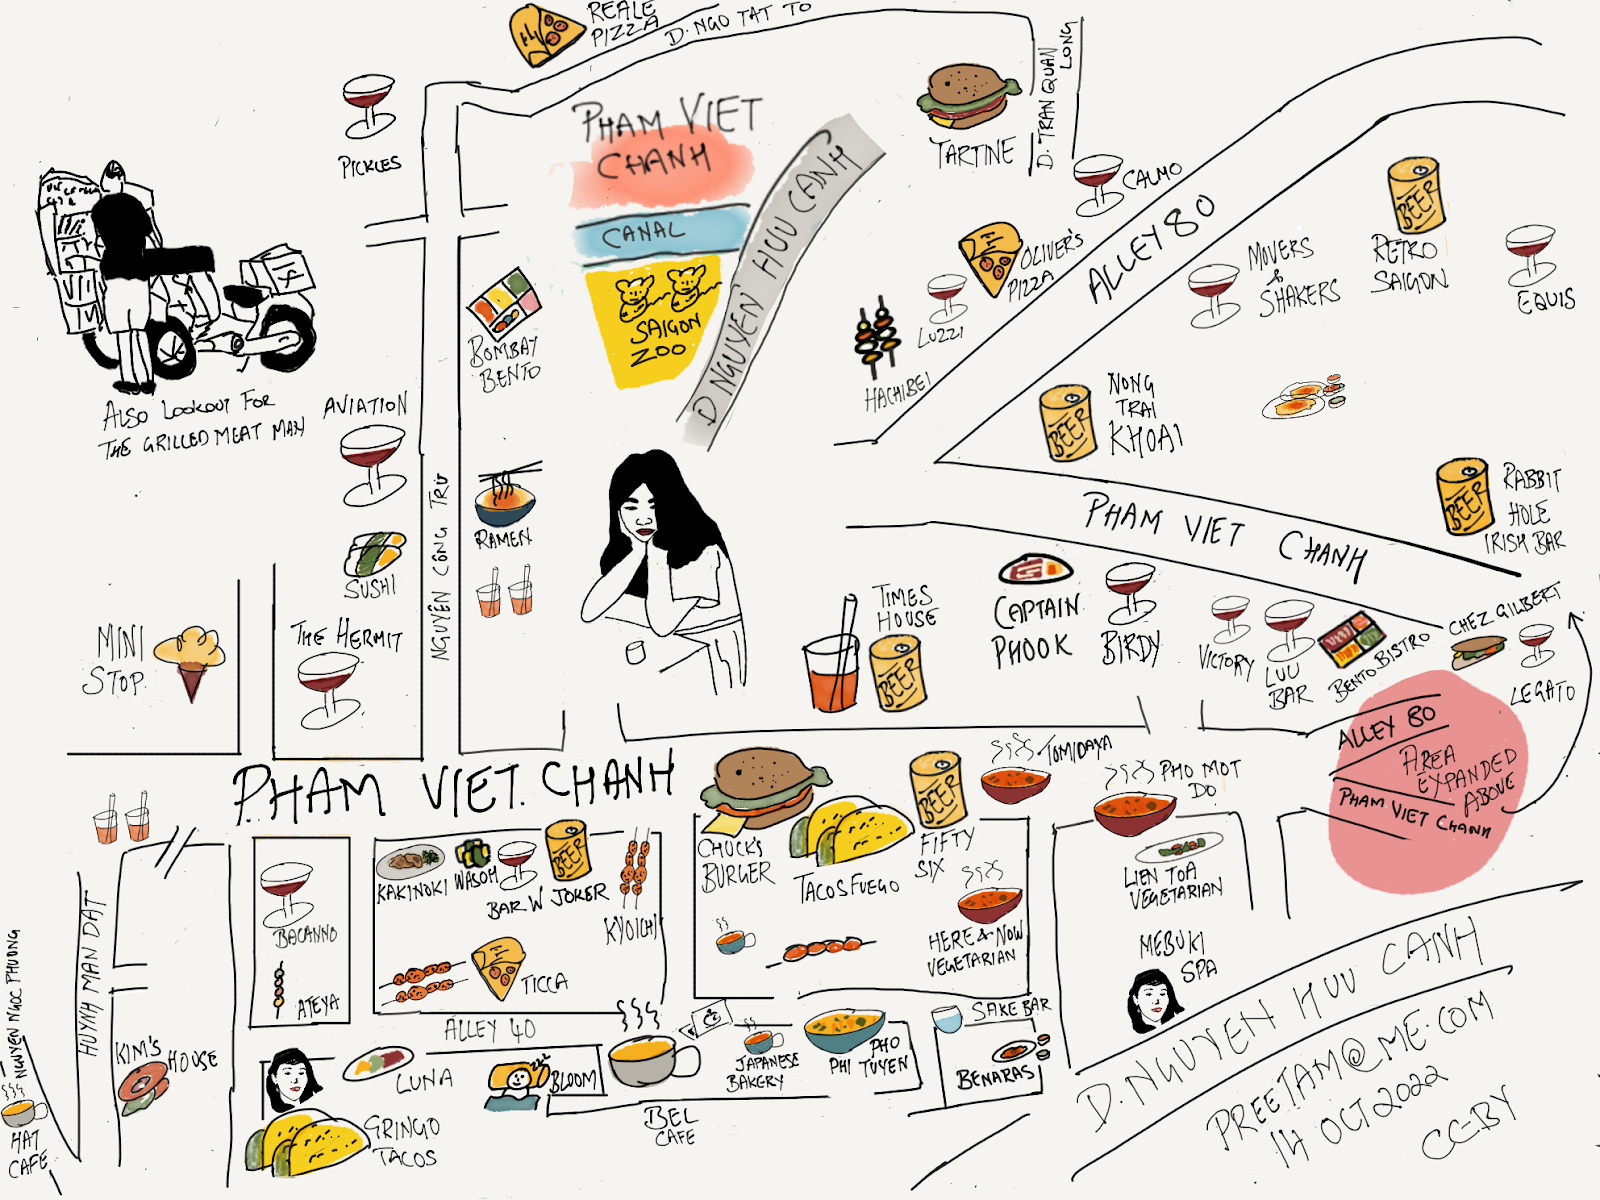 REALE
PIZZA
D. NGO TAT TO
D. TRAN QUAN
LONG
PICKLES
PHAM VIET
CHANH
CANAL
SAIGON
ZOO
D NGUYEN HUU CANH
TARTINE
CALMO
OLIVER'S
PIZZA
LUZZI
HACHIBEI
ALLEY 80
MOVERS
&
SHAKERS
BEER
RETRO
SAIGON
EQUIS
BOMBAY
BENTO
ALSO LOOKOUT FOR
THE GRILLED MEAT MAN
AVIATION
NGUYÊN CÔNG TRỨ
RAMEN
SUSHI
BEER
NONG
TRAI
KHOAI
BEER
RABBIT
HOLE
IRISH BAR
PHAM VIET CHANH
MINI
STOP
THE HERMIT
TIMES
HOUSE
BEER
CAPTAIN
PHOOK
BIRDY
VICTORY
LUU
BAR
BENTO BISTRO
CHEZ GILBERT
LEGATO
ALLEY 80
AREA
EXPANDED
ABOVE
PHAM VIET CHANH
PHAM VIET. CHANH
BEER
TOMIDAYA
PHO MOT
DO
CHUCK'S
BURGER
TACOS FUEGO
FIFTY
SIX
LIEN TOA
VEGETARIAN
KAKINOKI
WASOH
BAR W
BEER
JOKER
KYOICHI
BACANNO
ATEYA
TICCA
HERE & NOW
VEGETARIAN
MEBUKI
SPA
ALLEY 40
NGUYEN NGOC PHUONG
HUYNH MAN DAT
KIM'S
HOUSE
HAT
CAFE
LUNA
GRINGO
TACOS
BLOOM
BEL
CAFE
JAPANESE
BAKERY
PHO
PHI TUYEN
SAKE BAR
BENARAS
D. NGUYEN HUU CANH
PREETAM@ME.COM
14 OCT 2022
CC-BY